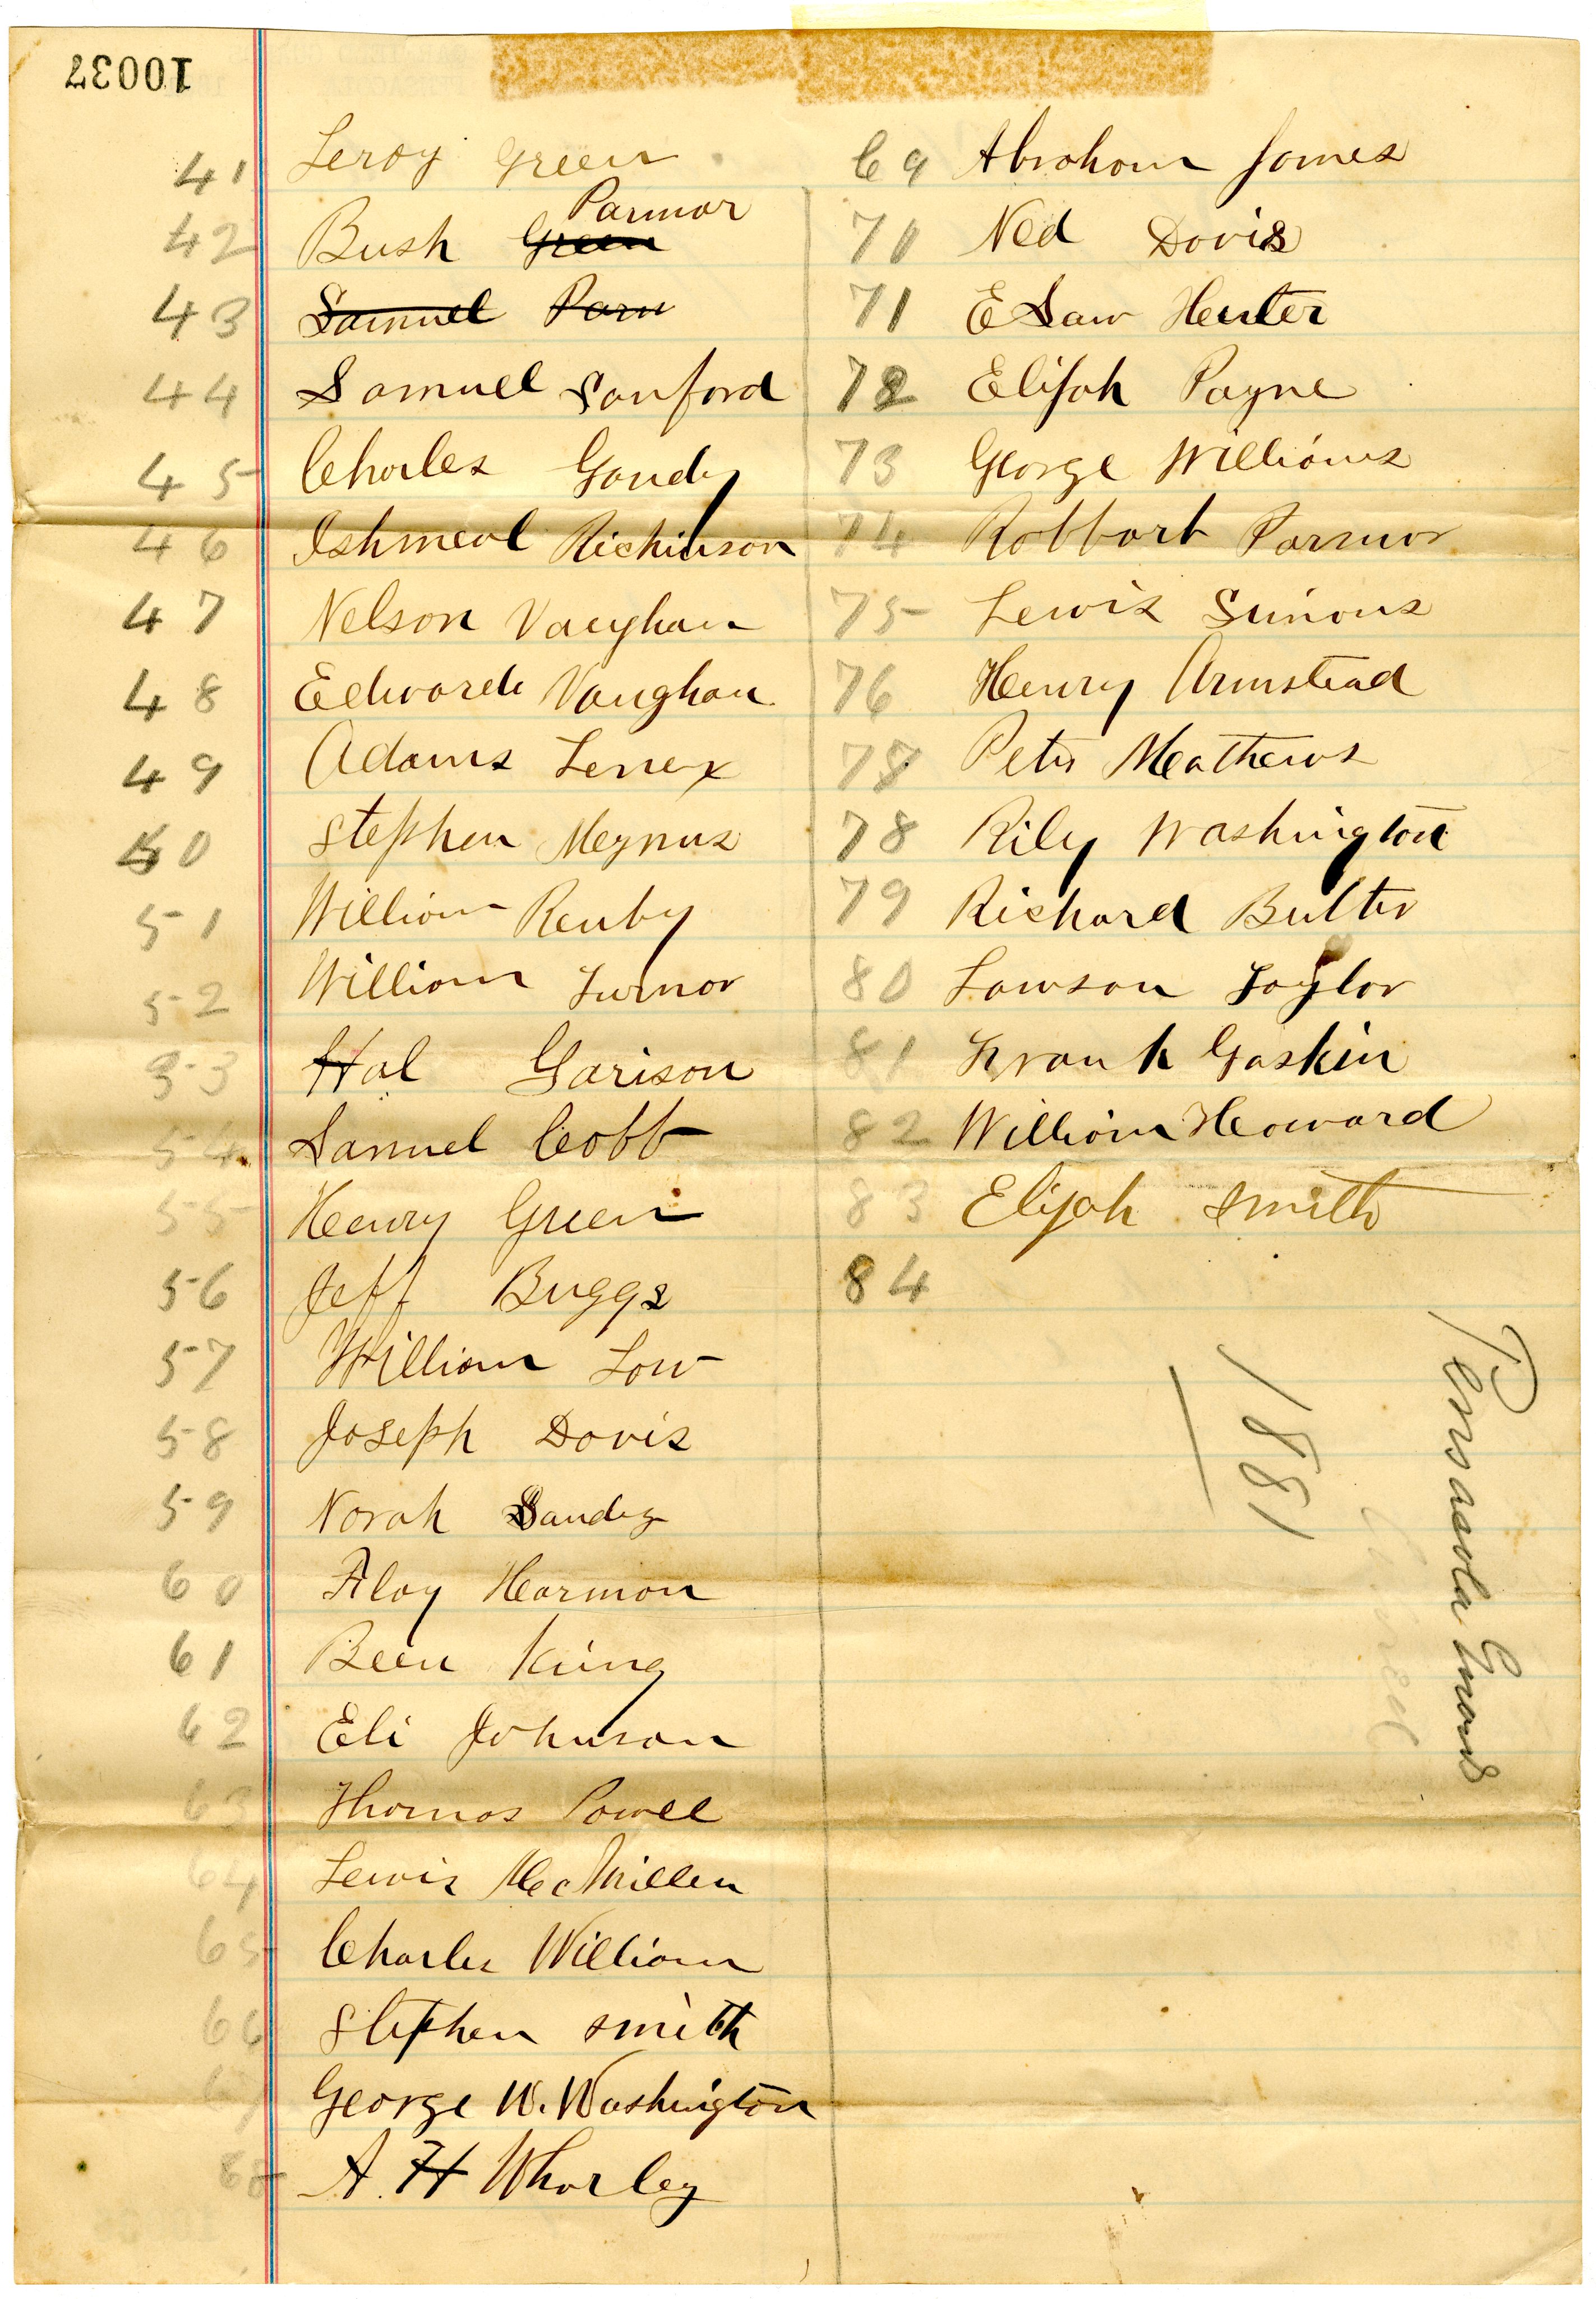 10037
41 Leroy Green
Parmor
42 Bush Green
43 Samuel Parn
44 Samuel Sanford
45 Charles Gandy
46 Ishmeal Richinson
47 Nelson Vaughan
48 Edward Vaughan
49 Adams Lenex
50 Stephen Megnus
51 William Renby
52 William Turnor
53 Hal Garison
54 Samuel Cobb
55 Henry Green
56 Jeff Buggs
57 William Low
58 Joseph Davis
59 Norah Sandy
60 Flay Harmon
61 Been King
62 Eli Johnson
63 Thomas Powell
64 Lewis McMillen
65 Charles William
66 Stephen Smith
67 George W. Washington
68 A. H Whorley
69 Abraham James
70 Ned Davis
71 ESaw Henter
72 Elijah Payne
73 George Williams
74 Robbart Parmor
75 Lewis Simons
76 Henry Armstead
77 Peter Meathews
78 Rily Washington
79 Richard Butler
80 Lawson Taylor
81 Frank Gaskin
82 William Howard
83 Elijah Smith
84
Pensacola Guards
1881